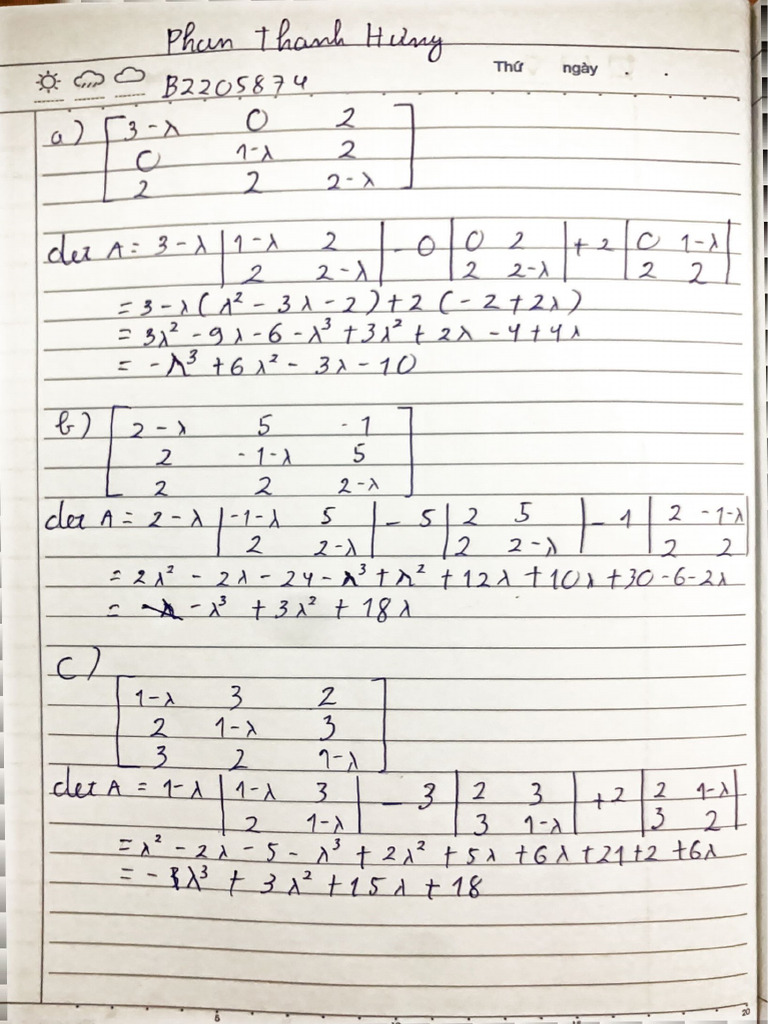 Phan Thanh Hưng
Thứ ngày . .
B2205874
a) [3-λ 0 2
0 1-λ 2
2 2 2-λ]
det A = 3-λ |1-λ 2| - 0 |0 2| + 2 |0 1-λ|
|2 2-λ| |2 2-λ| |2 2|
= 3-λ(λ² - 3λ - 2) + 2(-2 + 2λ)
= 3λ² - 9λ - 6 - λ³ + 3λ² + 2λ - 4 + 4λ
= -λ³ + 6λ² - 3λ - 10
b) [2-λ 5 -1
2 -1-λ 5
2 2 2-λ]
det A = 2-λ |-1-λ 5| - 5 |2 5| - 1 |2 -1-λ|
|2 2-λ| |2 2-λ| |2 2|
= 2λ² - 2λ - 24 - λ³ + λ² + 12λ + 10λ + 30 - 6 - 2λ
= -λ³ + 3λ² + 18λ
c)
[1-λ 3 2
2 1-λ 3
3 2 1-λ]
det A = 1-λ |1-λ 3| - 3 |2 3| + 2 |2 1-λ|
|2 1-λ| |3 1-λ| |3 2|
= λ² - 2λ - 5 - λ³ + 2λ² + 5λ + 6λ + 21 + 2 + 6λ
= -λ³ + 3λ² + 15λ + 18
5 10 15 20